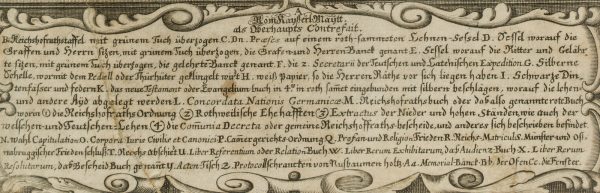 A
Röm: Kaÿserl: Maÿtt.
als Oberhaupts Contrefait.
B. Reichshofrathstaffel mit grünem Tuch überzogen C. Dn. Præses auf einem roth sammeten Lehnen-Sessel D. Sessel worauf die
Graffen und Herrn sizen, mit grünem Tuch überzogen, die Grafen und Herren Banct genant E. Sessel worauf die Ritter und Gelahr
te sizen, mit grünem Tuch überzogen, die gelehrte Banct genant. F. die 2. Secretarii der Teutschen und Lateinischen Expedition. G. Silberne
Schelle, wormit dem Pedell oder Thürhüter geklingelt wird H. weiß papier, so die Herren Räthe vor sich liegen haben. I. Schwarze Din-
tenfasser und federn K. das neue Testament oder Evangelium buch in 4to in roth samet eingebunden mit silbern beschlägen, worauf die lehen-
und andere Aÿd abgelegt werden L. Concordata Nationis Germanicæ M. Reichshofrathsbuch oder das also genannte rote Buch
worin ① die Reichshofraths Ordnung ② Rothweilische Ehehafften ③ Extractus der Nieder und hohen Ständen, wie auch der
welschen und Teutschen Lehen ④ die Comunia Decreta oder gemeine Reichshofraths bescheide, und anderes sich beschrieben befindet
N. wahl Capitulation O. Corpora Iuris Civilis et Canonici P. Cam̃ergerichts Ordnung Q. Profan und Religions Frieden R. Reichs Matricul S. Münster und Oß-
nabruggischer Frieden schluß T. Reichs Abschied U. Liber Referentium oder Relation Buch W. Liber Rerum Exhibitarum, das Audienz Buch X. Liber Rerum
Resolutarum, das Bescheid Buch genant Y. Acten Tisch Z. Protocoll schrancken von Nusbaumen holtz Aa. Memorial-Bänct Bb. der Ofen Cc. die Fenster.